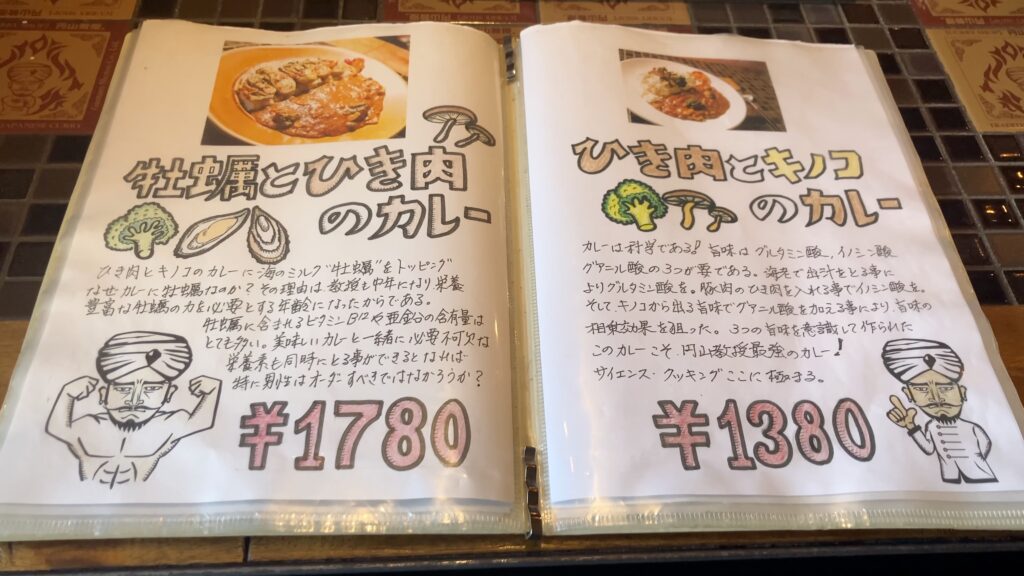 牡蠣とひき肉
のカレー
ひき肉とキノコのカレーに海のミルク"牡蠣"をトッピング
なぜカレーに牡蠣なのか?その理由は教授も中年になり栄養
豊富な牡蠣の力を必要とする年齢になったからである。
牡蠣に含まれるビタミンB12や亜鉛の含有量は
とても多い。美味しいカレーと一緒に必要不可欠な
栄養素も同時にとる事ができるとなれば
特に男性はオーダーすべきではなかろうか?
¥1780
ひき肉とキノコ
のカレー
カレーは科学である!旨味はグルタミン酸、イノシン酸
グアニル酸の3つが要である。海老で出汁をとる事に
よりグルタミン酸を。豚肉のひき肉を入れる事でイノシン酸を。
そして、キノコから出る旨味でグアニル酸を加える事により、旨味の
相乗効果を狙った。3つの旨味を意識して作られた
このカレーこそ、円山教授最強のカレー!
サイエンス・クッキングここに極まる。
¥1380